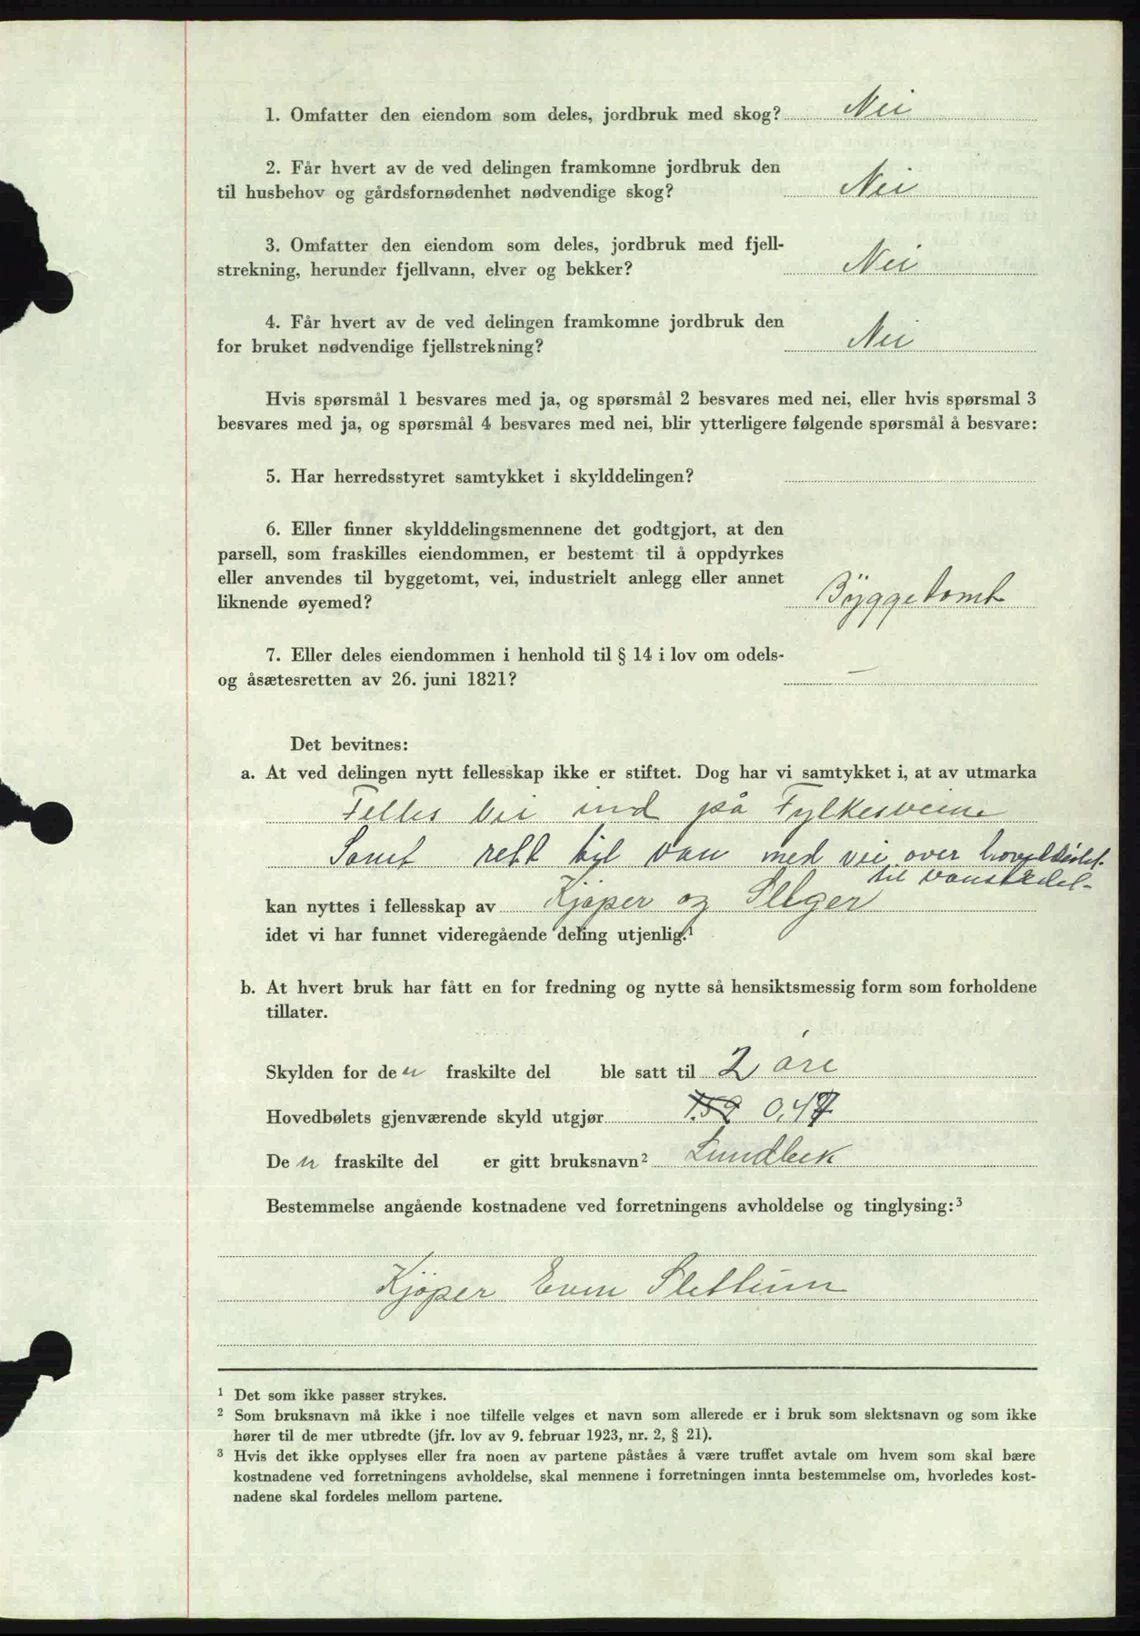 1. Omfatter den eiendom som deles, jordbruk med skog? Nei
2. Får hvert av de ved delingen framkomne jordbruk den
til husbehov og gårdsfornødenhet nødvendige skog? Nei
3. Omfatter den eiendom som deles, jordbruk med fjell-
strekning, herunder fjellvann, elver og bekker? Nei
4. Får hvert av de ved delingen framkomne jordbruk den
for bruket nødvendige fjellstrekning? Nei
Hvis spørsmål 1 besvares med ja, og spørsmål 2 besvares med nei, eller hvis spørsmal 3
besvares med ja, og spørsmål 4 besvares med nei, blir ytterligere følgende spørsmål å besvare:
5. Har herredsstyret samtykket i skylddelingen?
6. Eller finner skylddelingsmennene det godtgjort, at den
parsell, som fraskilles eiendommen, er bestemt til å oppdyrkes
eller anvendes til byggetomt, vei, industrielt anlegg eller annet
liknende øyemed? Byggetomt
7. Eller deles eiendommen i henhold til § 14 i lov om odels-
og åsætesretten av 26. juni 1821? —
Det bevitnes:
a. At ved delingen nytt fellesskap ikke er stiftet. Dog har vi samtykket i, at av utmarka
Felles vei ind på Fylkesveine
Samt rett til van med vei over
til
kan nyttes i fellesskap av Kjøper og Selger
idet vi har funnet videregående deling utjenlig.¹
b. At hvert bruk har fått en for fredning og nytte så hensiktsmessig form som forholdene
tillater.
Skylden for den fraskilte del ble satt til 2 øre
Hovedbølets gjenværende skyld utgjør 1.59 0,47
Den fraskilte del er gitt bruksnavn² Lundbek
Bestemmelse angående kostnadene ved forretningens avholdelse og tinglysing:³
Kjøper Even Slettum
¹ Det som ikke passer strykes.
² Som bruksnavn må ikke i noe tilfelle velges et navn som allerede er i bruk som slektsnavn og som ikke
hører til de mer utbredte (jfr. lov av 9. februar 1923, nr. 2, § 21).
³ Hvis det ikke opplyses eller fra noen av partene påståes å være truffet avtale om hvem som skal bære
kostnadene ved forretningens avholdelse, skal mennene i forretningen innta bestemmelse om, hvorledes kost-
nadene skal fordeles mellom partene.